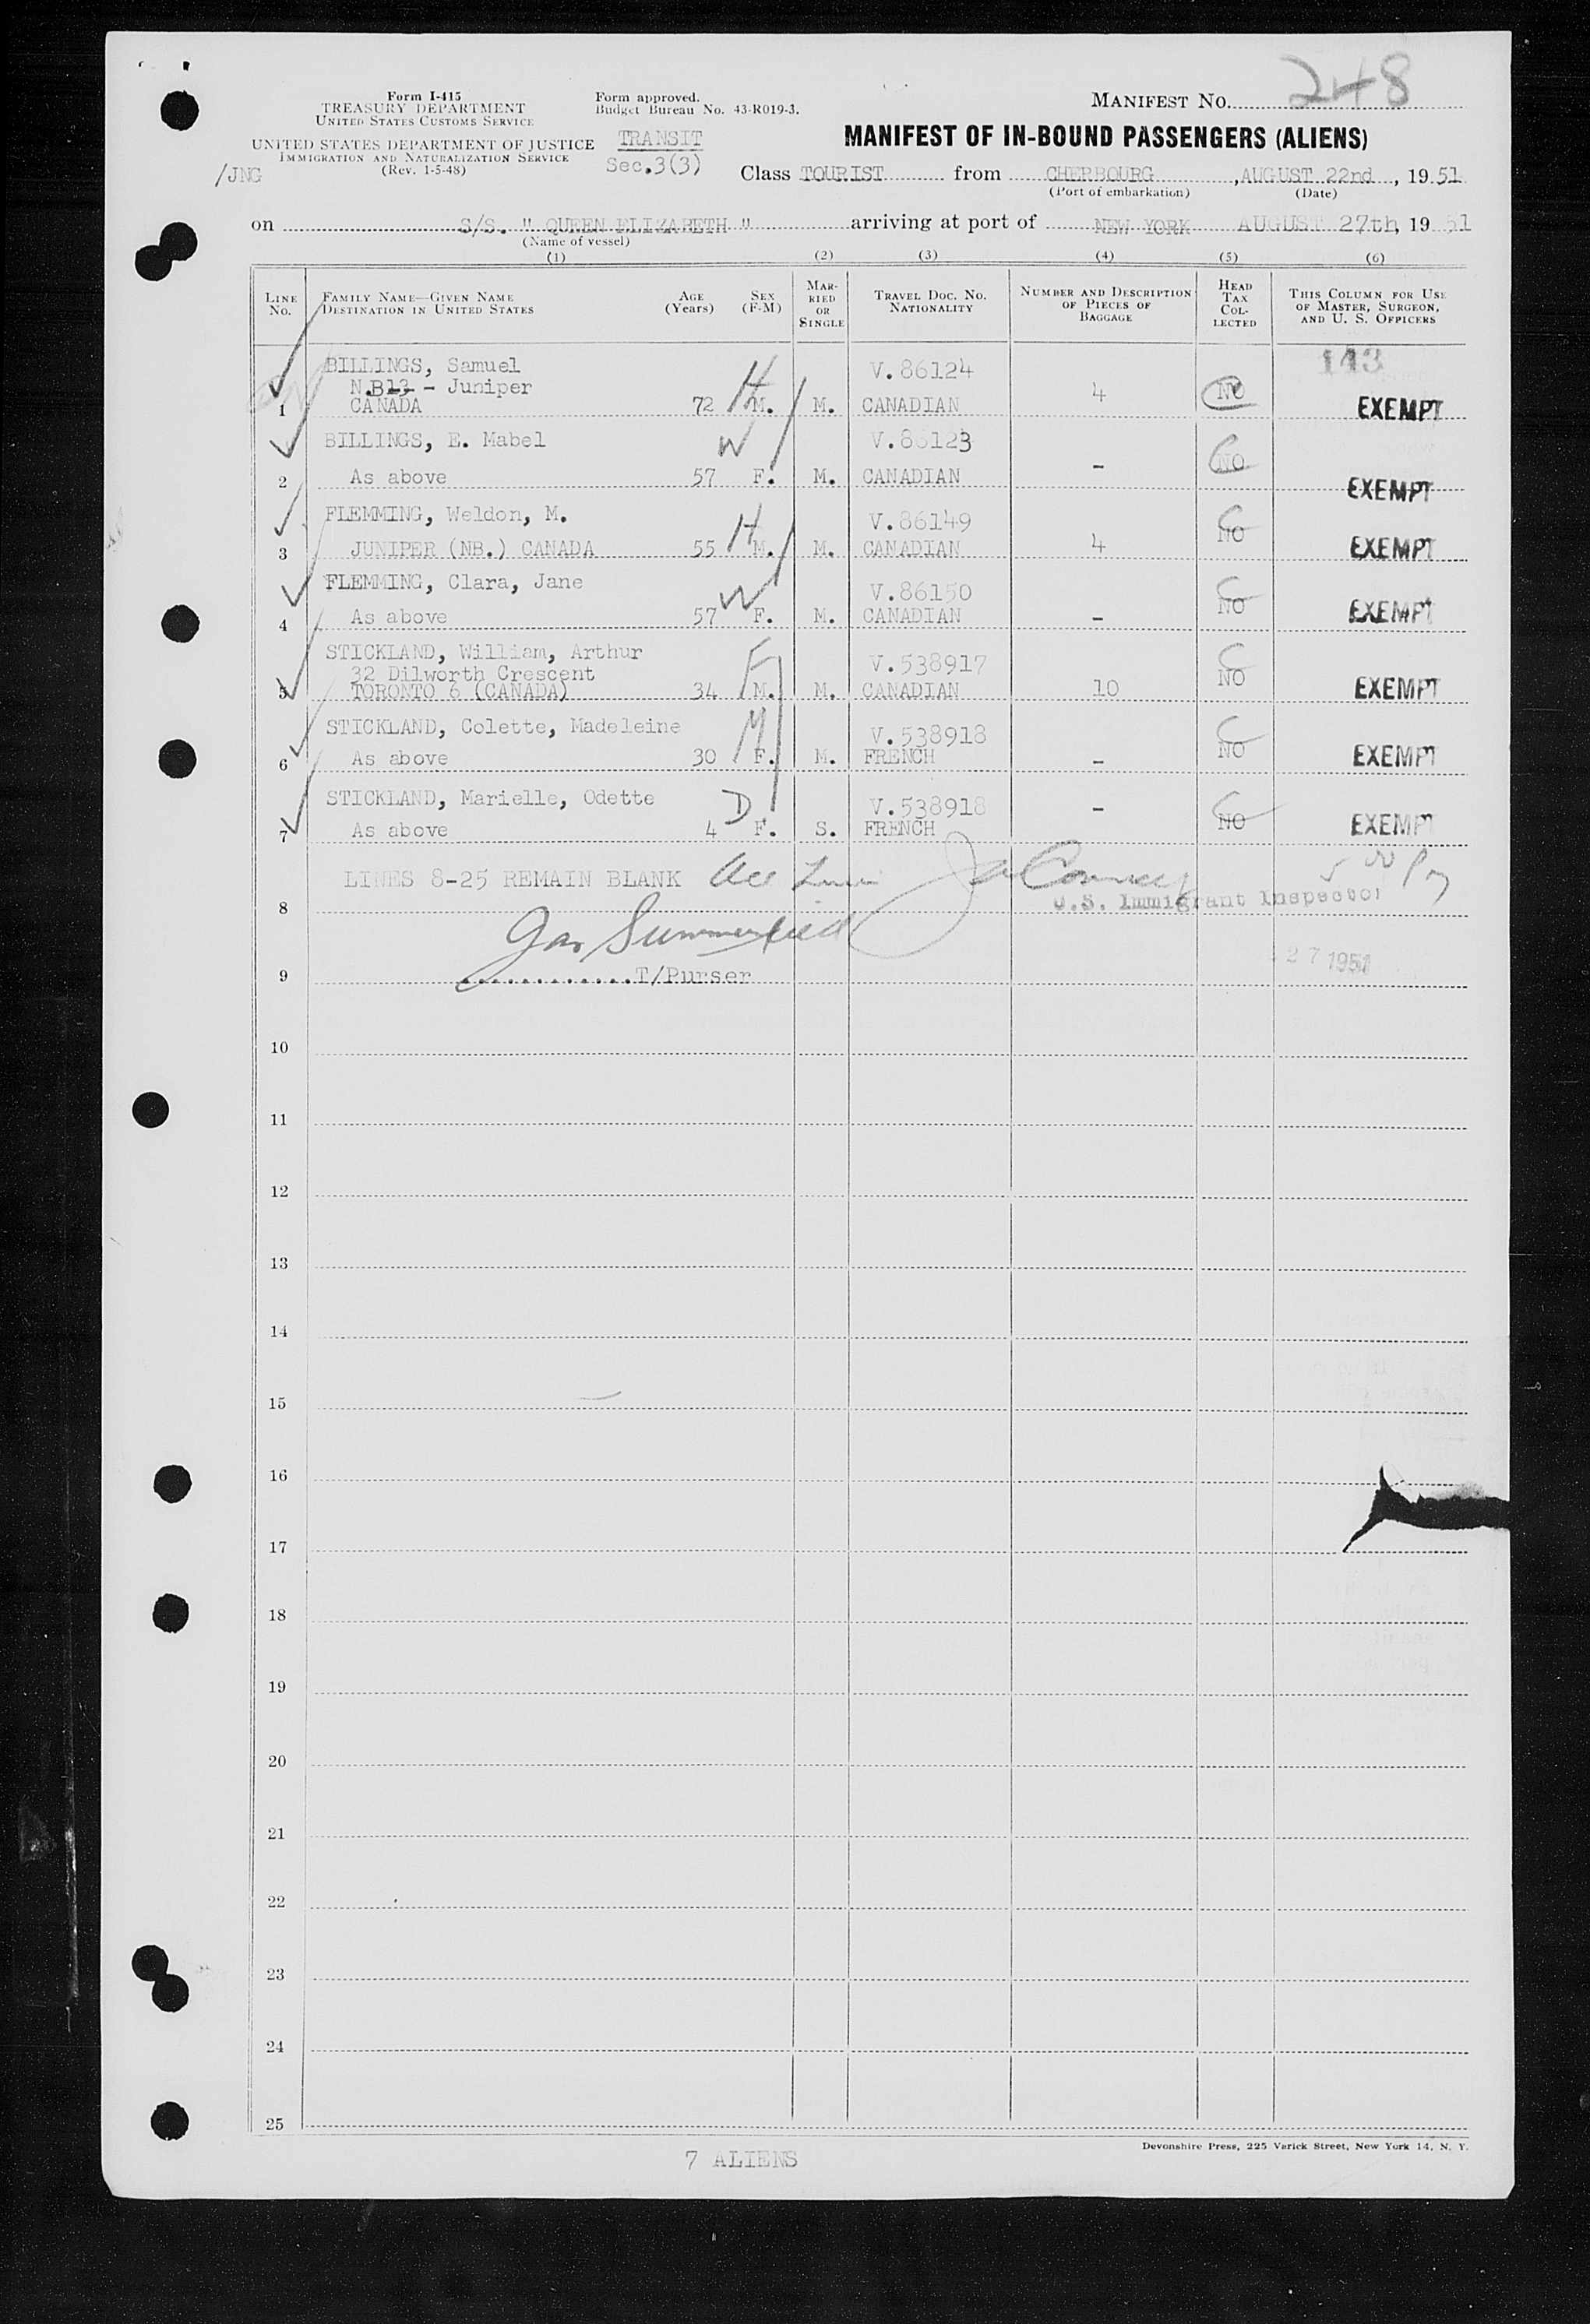 248
Form I-415
TREASURY DEPARTMENT
UNITED STATES CUSTOMS SERVICE
UNITED STATES DEPARTMENT OF JUSTICE
IMMIGRATION AND NATURALIZATION SERVICE
(Rev. 1-5-48)
/JNG
Form approved.
Budget Bureau No. 43-R019-3.
TRANSIT
Sec.3(3)
MANIFEST NO.
MANIFEST OF IN-BOUND PASSENGERS (ALIENS)
Class TOURIST from CHERBOURG, AUGUST 22nd, 1951
(Port of embarkation) (Date)
on S/S. " QUEEN ELIZABETH " arriving at port of NEW YORK AUGUST 27th, 1951
(Name of vessel)
(1) (2) (3) (4) (5) (6)
LINE NO. FAMILY NAME—GIVEN NAME DESTINATION IN UNITED STATES AGE (Years) SEX (F-M) MARRIED OR SINGLE TRAVEL DOC. NO. NATIONALITY NUMBER AND DESCRIPTION OF PIECES OF BAGGAGE HEAD TAX COLLECTED THIS COLUMN FOR USE OF MASTER, SURGEON, AND U. S. OFFICERS
BILLINGS, Samuel V.86124 143
N.B13 - Juniper H 4 NO
1 CANADA 72 M. M. CANADIAN EXEMPT
BILLINGS, E. Mabel W V.86123 C NO
2 As above 57 F. M. CANADIAN - EXEMPT
FLEMMING, Weldon, M. H V.86149 C NO
3 JUNIPER (NB.) CANADA 55 M. M. CANADIAN 4 EXEMPT
FLEMMING, Clara, Jane W V.86150 C NO
4 As above 57 F. M. CANADIAN - EXEMPT
STICKLAND, William, Arthur F V.538917 C NO
32 Dilworth Crescent
5 TORONTO 6 (CANADA) 34 M. M. CANADIAN 10 EXEMPT
STICKLAND, Colette, Madeleine M V.538918 C NO
6 As above 30 F. M. FRENCH - EXEMPT
STICKLAND, Marielle, Odette D V.538918 - C NO
7 As above 4 F. S. FRENCH EXEMPT
LINES 8-25 REMAIN BLANK
8 U.S. Immigrant Inspector
Summerfield
27 1951
9 ............T/Purser
10
11
12
13
14
15
16
17
18
19
20
21
22
23
24
25
7 ALIENS
Devonshire Press, 225 Varick Street, New York 14, N. Y.